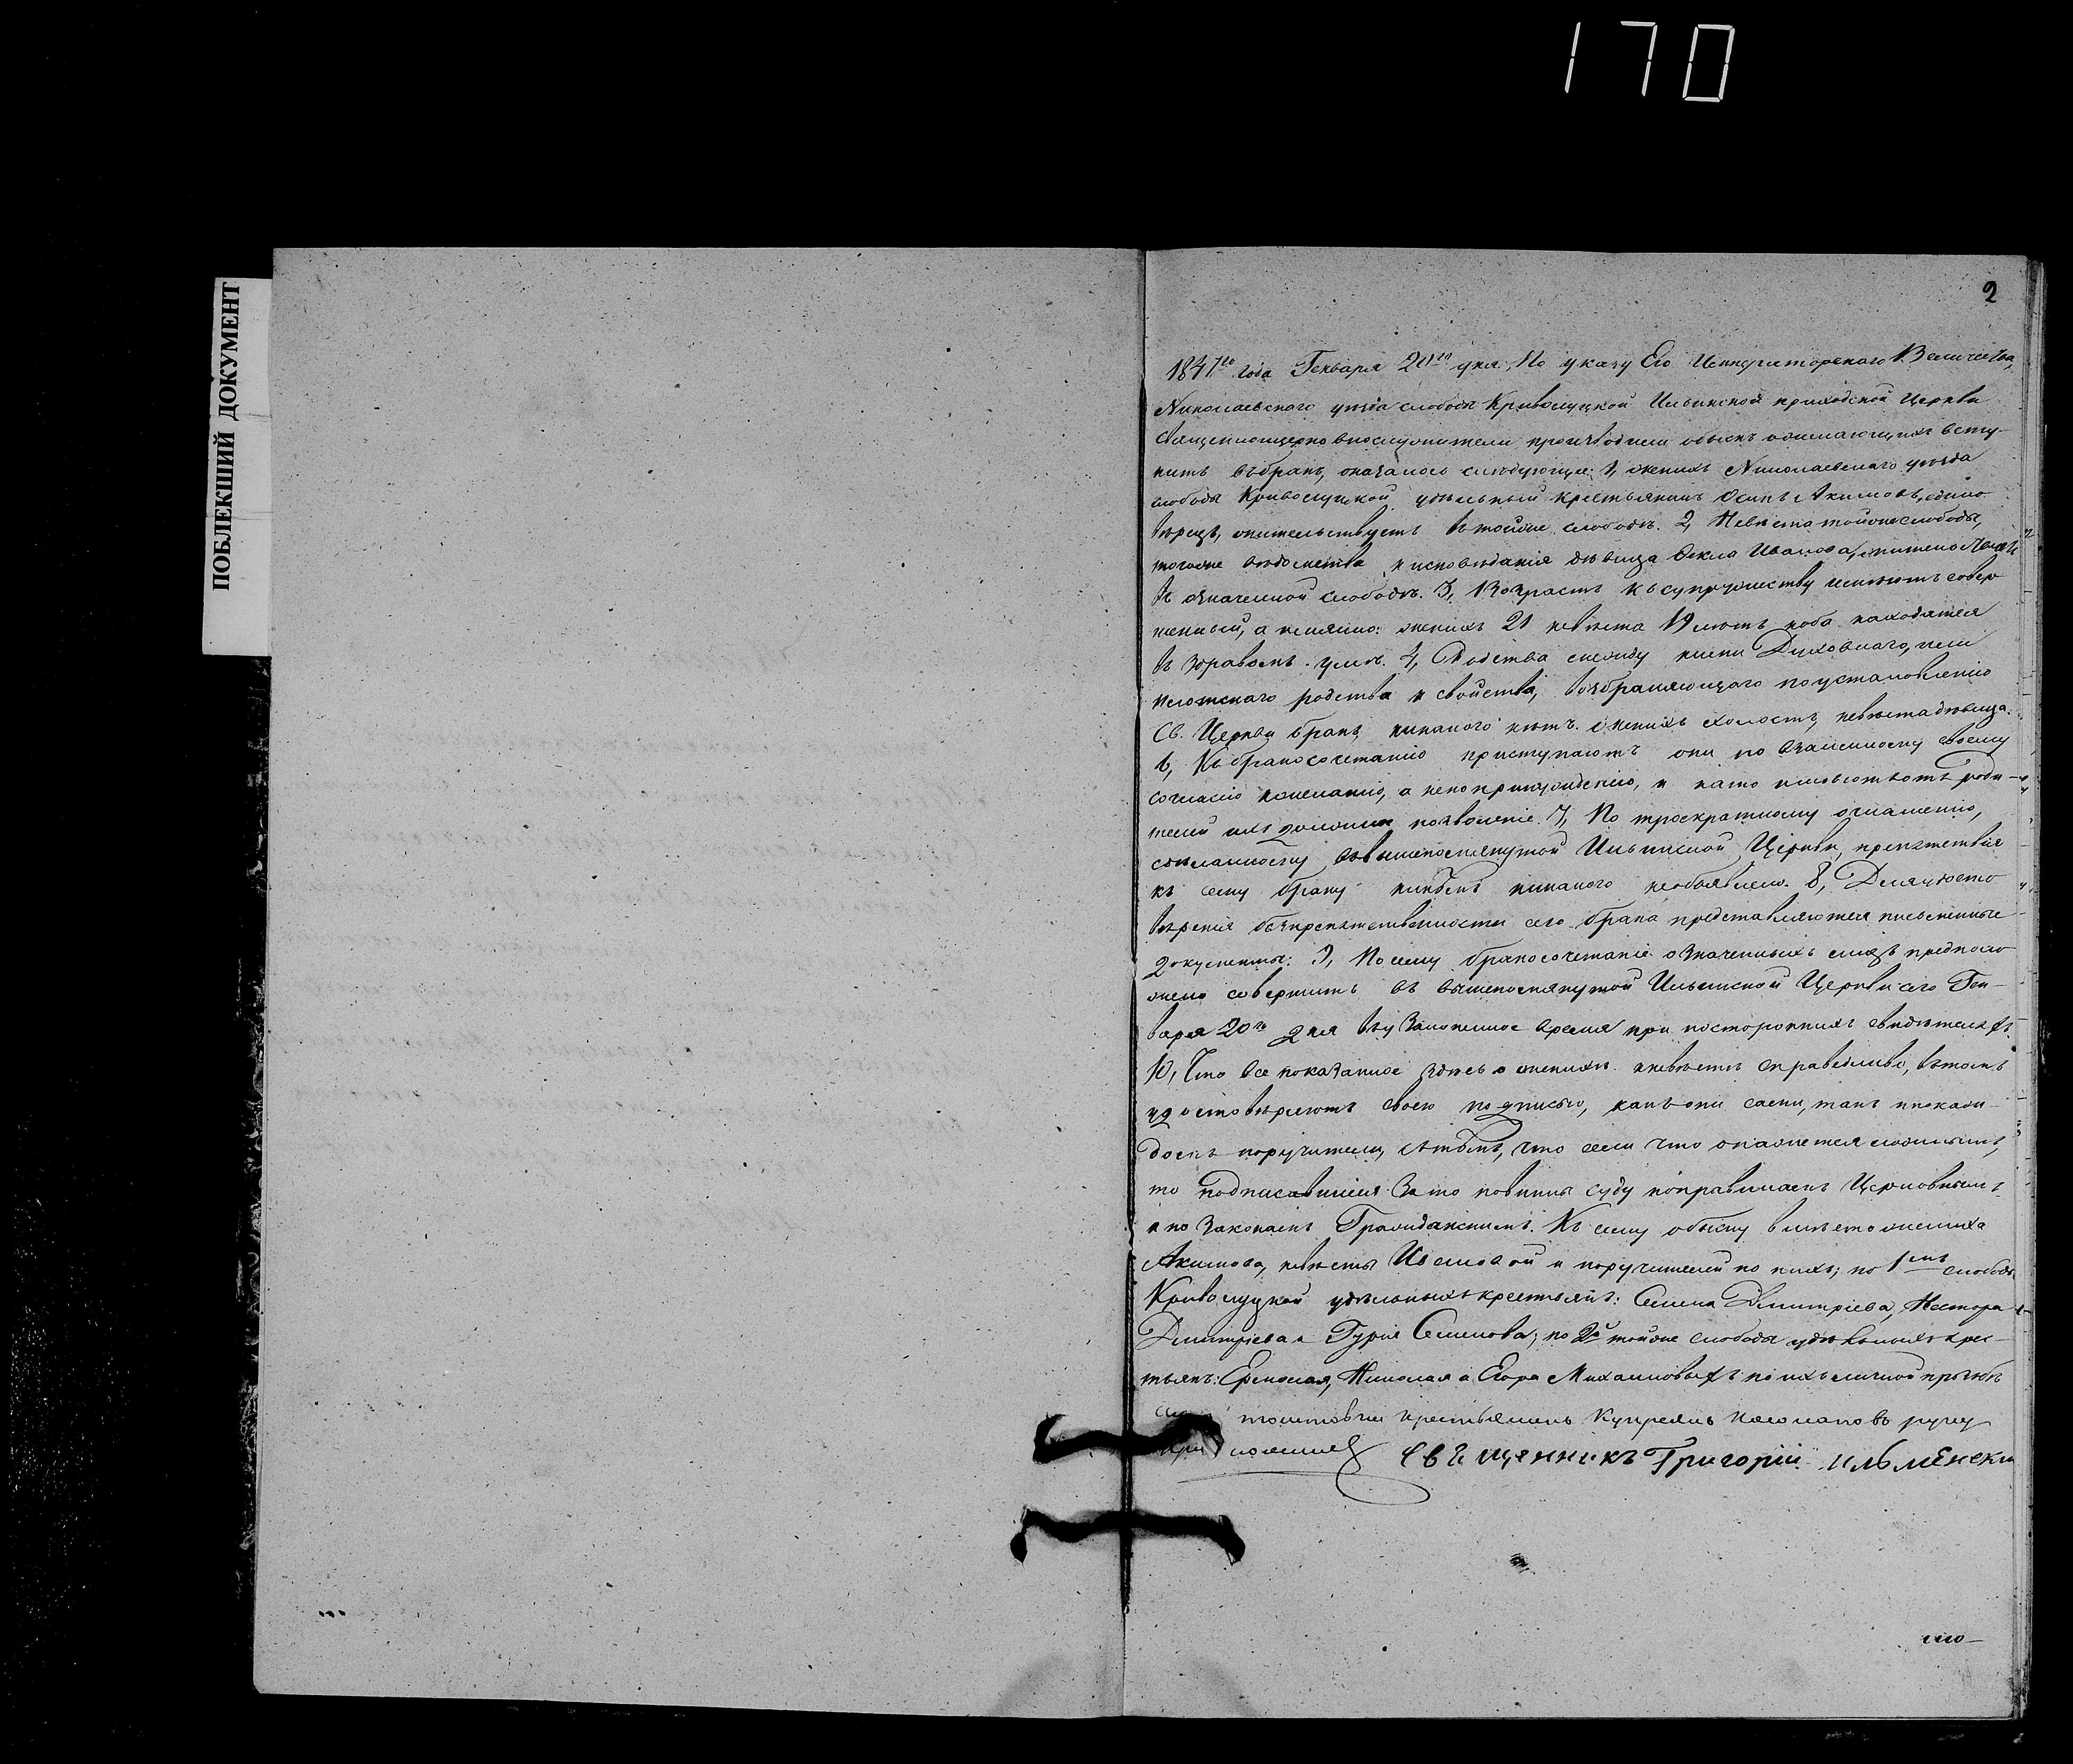 170
ПОБЛЕКШИЙ ДОКУМЕНТ
2
1847го года Генваря 20го дня, По указу Его Императорскаго Величества,
Николаевскаго уѣзда слободы Криволуцкой Ильинской приходской Церкви
священноцерковнослужители производили обыскъ о желающихъ всту-
пить въ бракъ, оказалось слѣдующее: 1, женихъ Николаевскаго уѣзда
слободы Криволуцкой удѣльный крестьянинъ Осипъ Акимовъ, едино
вѣрецъ, жительствуетъ въ тойже слободѣ. 2, Невѣста тойже слободы,
тогоже вѣдомства и исповѣданія дѣвица Фекла Иванова, жительствуетъ
въ означенной слободѣ. 3, Возрастъ къ супружеству имѣютъ совер
шенный, а именно: женихъ 21 невѣста 19 лѣтъ и оба находятся
въ здравомъ умѣ. 4, Родства между ими Духовнаго, или
плотскаго родства и свойства, возбраняющаго по установленію
Св. Церкви бракъ, никакого нѣтъ. женихъ холостъ, невѣста дѣвица.
6, Къ бракосочетанію приступаютъ они по взаимному своему
согласію и желанію, а не по принужденію, и на то имѣютъ отъ роди-
телей ихъ должное позволеніе. 7, По троекратному оглашенію,
сдѣланному въ вышеупомянутой Ильинской Церкви, препятствія
къ сему браку никѣмъ никакого не объявлено. 8, Для удосто
вѣренія безпрепятственности сего брака представляются письменные
документы: 9, По сему бракосочетаніе означенныхъ лицъ предполо
жено совершить въ вышепомянутой Ильинской Церкви сего Ген-
варя 20го дня въ узаконенное время при постороннихъ свидѣтеляхъ.
10, Что все показанное здѣсь о женихѣ и невѣстѣ справедливо, въ томъ
удостовѣряютъ своею подписью, какъ они сами, такъ и по каж
домъ поручители, съ тѣмъ, что если что окажется ложнымъ,
то подписавшіеся за то повинны суду по правиламъ Церковнымъ
и по законамъ Гражданскимъ. Къ сему обыску вмѣсто жениха
Акимова, невѣсты Ивановой и поручителей по нихъ; по 1мъ слободы
Криволуцкой удѣльныхъ крестьянъ: Семена Дмитріева, Нестора
Дмитріева и Гурія Семенова; по 2й тойже слободы удѣльныхъ крес-
тьянъ: Ермолая, Николая и Егора Михайловыхъ по ихъ личной прозьбѣ
крестьянинъ Купреянъ руку
приложилъ Священникъ Григорій Ильменски